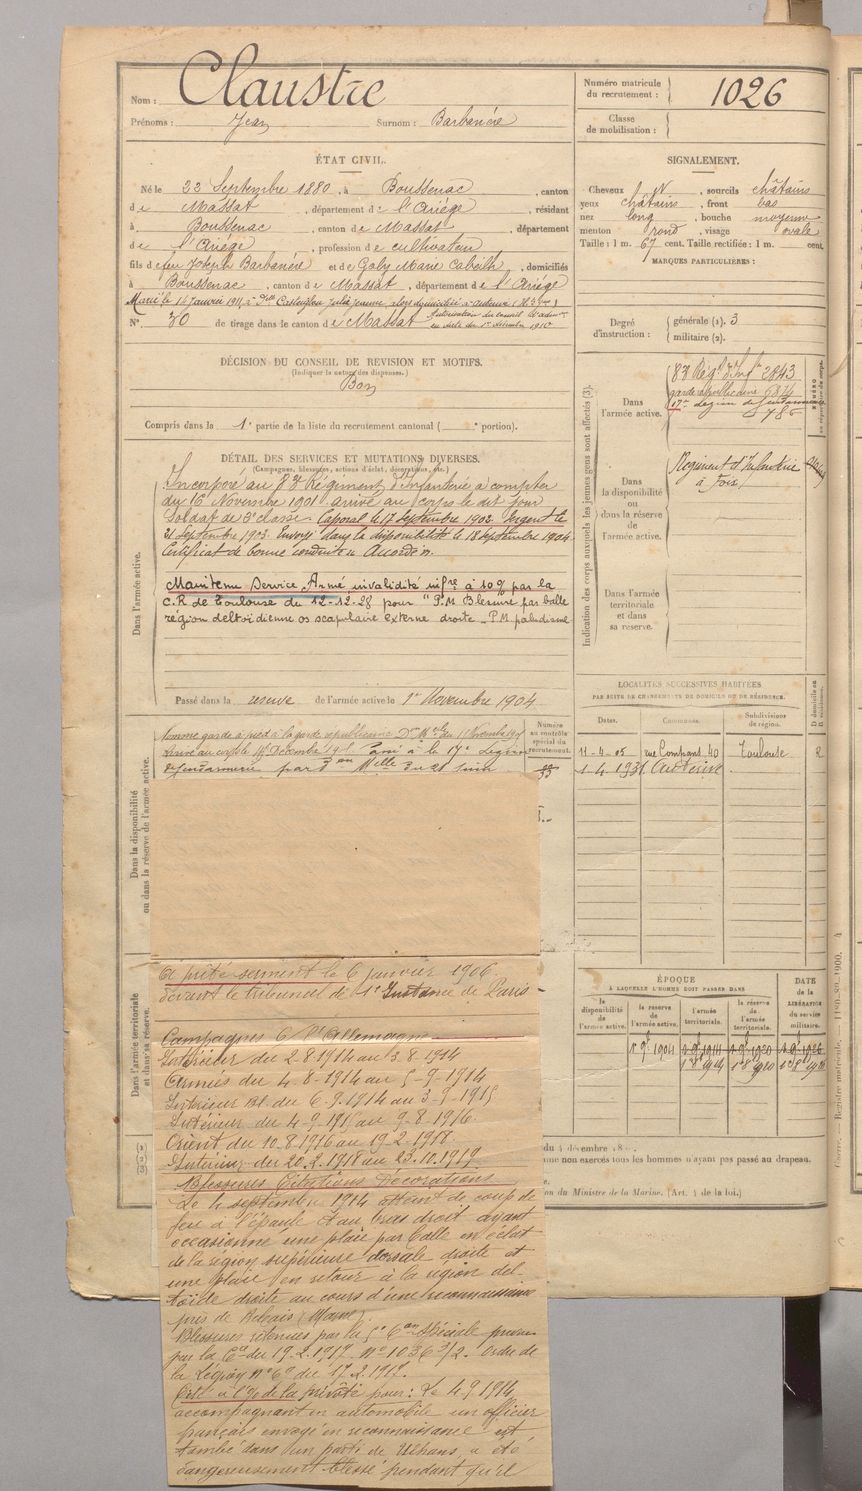 Nom : Claustre
Prénoms : Jean Surnom : Barbanère
Numéro matricule du recrutement : 1026
Classe de mobilisation :
ÉTAT CIVIL.
Né le 22 Septembre 1880, à Boussenac, canton
de Massat, département de l'Ariége, résidant
à Boussenac, canton de Massat, département
de l'Ariége, profession de cultivateur
fils de feu Joseph Barbanère et de Galy Marie Cabeilh, domiciliés
à Boussenac, canton de Massat, département de l'Ariége
Marié le 16 Janvier 1911, à Dlle
N° 70 de tirage dans le canton de Massat
Autorisation du conseil d'adm
en date du 1er décembre 1910
SIGNALEMENT.
Cheveux N, sourcils châtains
yeux châtains, front bas
nez long, bouche moyenne
menton rond, visage ovale
Taille : 1 m. 67 cent. Taille rectifiée : 1 m. cent.
MARQUES PARTICULIÈRES :
Degré d'instruction : générale (1). 3
militaire (2).
DÉCISION DU CONSEIL DE REVISION ET MOTIFS.
(Indiquer la nature des dispenses.)
Bon
Compris dans la 1e partie de la liste du recrutement cantonal ( e portion).
DÉTAIL DES SERVICES ET MUTATIONS DIVERSES.
(Campagnes, blessures, actions d'éclat, décorations, etc.)
Dans l'armée active.
Incorporé au 83 Régiment d'Infanterie à compter
du 16 Novembre 1901 arrivé au corps le dit jour
Soldat de 2e classe. Caporal le 17 Septembre 1902. Sergent le
21 Septembre 1903. Envoyé dans la disponibilité le 18 septembre 1904
Certificat de bonne conduite Accordé.
Maintenu Service Armé invalidité infre à 10% par la
C.R de Toulouse du 12-12-28 pour "P.M Blessure par balle
région deltoïdienne os scapulaire externe droite - P.M paludisme
Passé dans la reserve de l'armée active le 1er Novembre 1904
Indication des corps auxquels les jeunes gens sont affectés (3).
Dans l'armée active.
83 Régt d'Inf 2843
garde républicaine 6874
17e Légion de Gendarmerie
786
Dans la disponibilité ou dans la réserve de l'armée active.
Régiment d'Infanterie
à Foix
Dans l'armée territoriale et dans sa reserve.
LOCALITÉS SUCCESSIVES HABITÉES
PAR SUITE DE CHANGEMENTS DE DOMICILE OU DE RÉSIDENCE.
Dates. Communes. Subdivisions de région. D domicile ou R résidence.
11-4-05 rue Compans 40 Toulouse R
1-4-1931 Auterive
Dans la disponibilité ou dans la réserve de l'armée active.
Nommé garde à pied à la garde républicaine
Arrivé au corps le Décembre Passé à la 17e Légion
de Gendarmerie par Don Melle du 21 Juin
Numéro au contrôle spécial du recrutement.
Dans l'armée territoriale et dans sa réserve.
A prêté serment le 6 janvier 1906
devant le tribunal de 1e Instance de Paris -
Campagnes C l'Allemagne
Intérieur du 2-8-1914 au 3-8-1914
Armées du 4-8-1914 au 5-9-1914
Intérieur Bl. du 6-9-1914 au 3-9-1915
Intérieur du 4-9-1915 au 9-8-1916
Orient du 10.8.1916 au 19-2-1918.
Intérieur du 20.2.1918 au 23.10.1919
Blessures Citations Décorations
Le 4 septembre 1914 atteint de coup de
feu à l'épaule et au bras droit ayant
occasionné une plaie par balle en éclat
de la région supérieure dorsale droite et
une plaie en retour à la région del-
toïde droite au cours d'une reconnaissance
près de Rebais (Marne)
Blessures retenues par la 5e Con Spéciale
par la Ce du 19.2.1917. N° 1036 3/2. Ordre de
la Légion n° 69 du 17.2.1917.
Cité à l'O. de la prévôté pour : Le 4.9.1914,
accompagnant en automobile un officier
français envoyé en reconnaissance est
tombé dans un parti de Uhlans, a été
dangereusement blessé pendant qu'il
ÉPOQUE
À LAQUELLE L'HOMME DOIT PASSER DANS
la disponibilité de l'armée active. la reserve de l'armée active. l'armée territoriale. la réserve de l'armée territoriale.
DATE de la LIBÉRATION du service militaire.
1er 9bre 1904
du 4 décembre 18
non exercés tous les hommes n'ayant pas passé au drapeau.
on du Ministre de la Marine. (Art. 4 de la loi.)